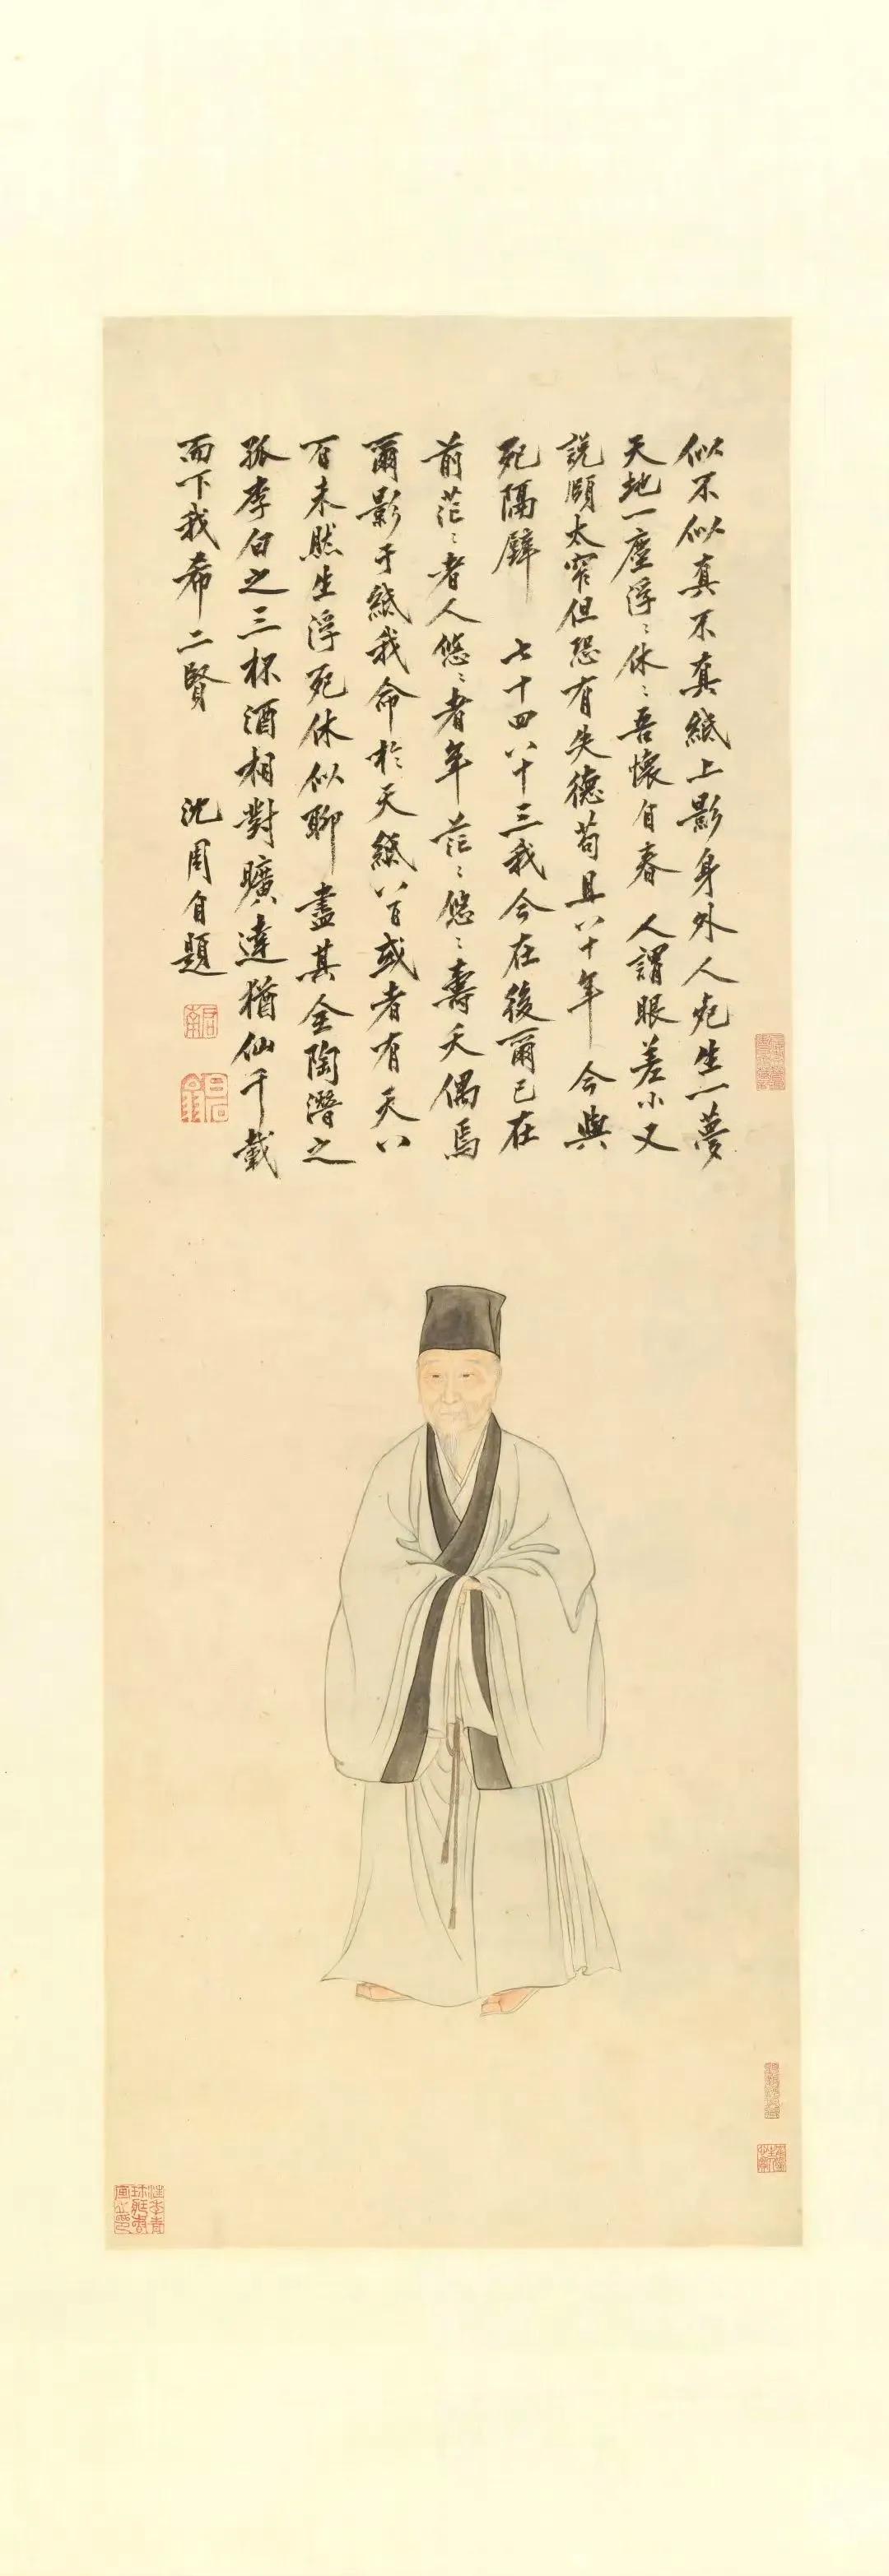 似不似真不真紙上影身外人死生一夢
天地一塵浮〻休〻吾懷自春 人謂眼差小又
説頤太窄但恐有失德苟且八十年 今與
死隔壁 七十四八十三我今在後爾已在
前茫〻者人悠〻者年茫〻悠〻壽夭偶焉
爾影于紙我命於天紙八百或者有天八
百未然生浮死休似聊 盡其全陶潛之
孤李白之三杯酒相對曠達猶仙千載
而下我希二賢 沈周自題
啓南
白石翁